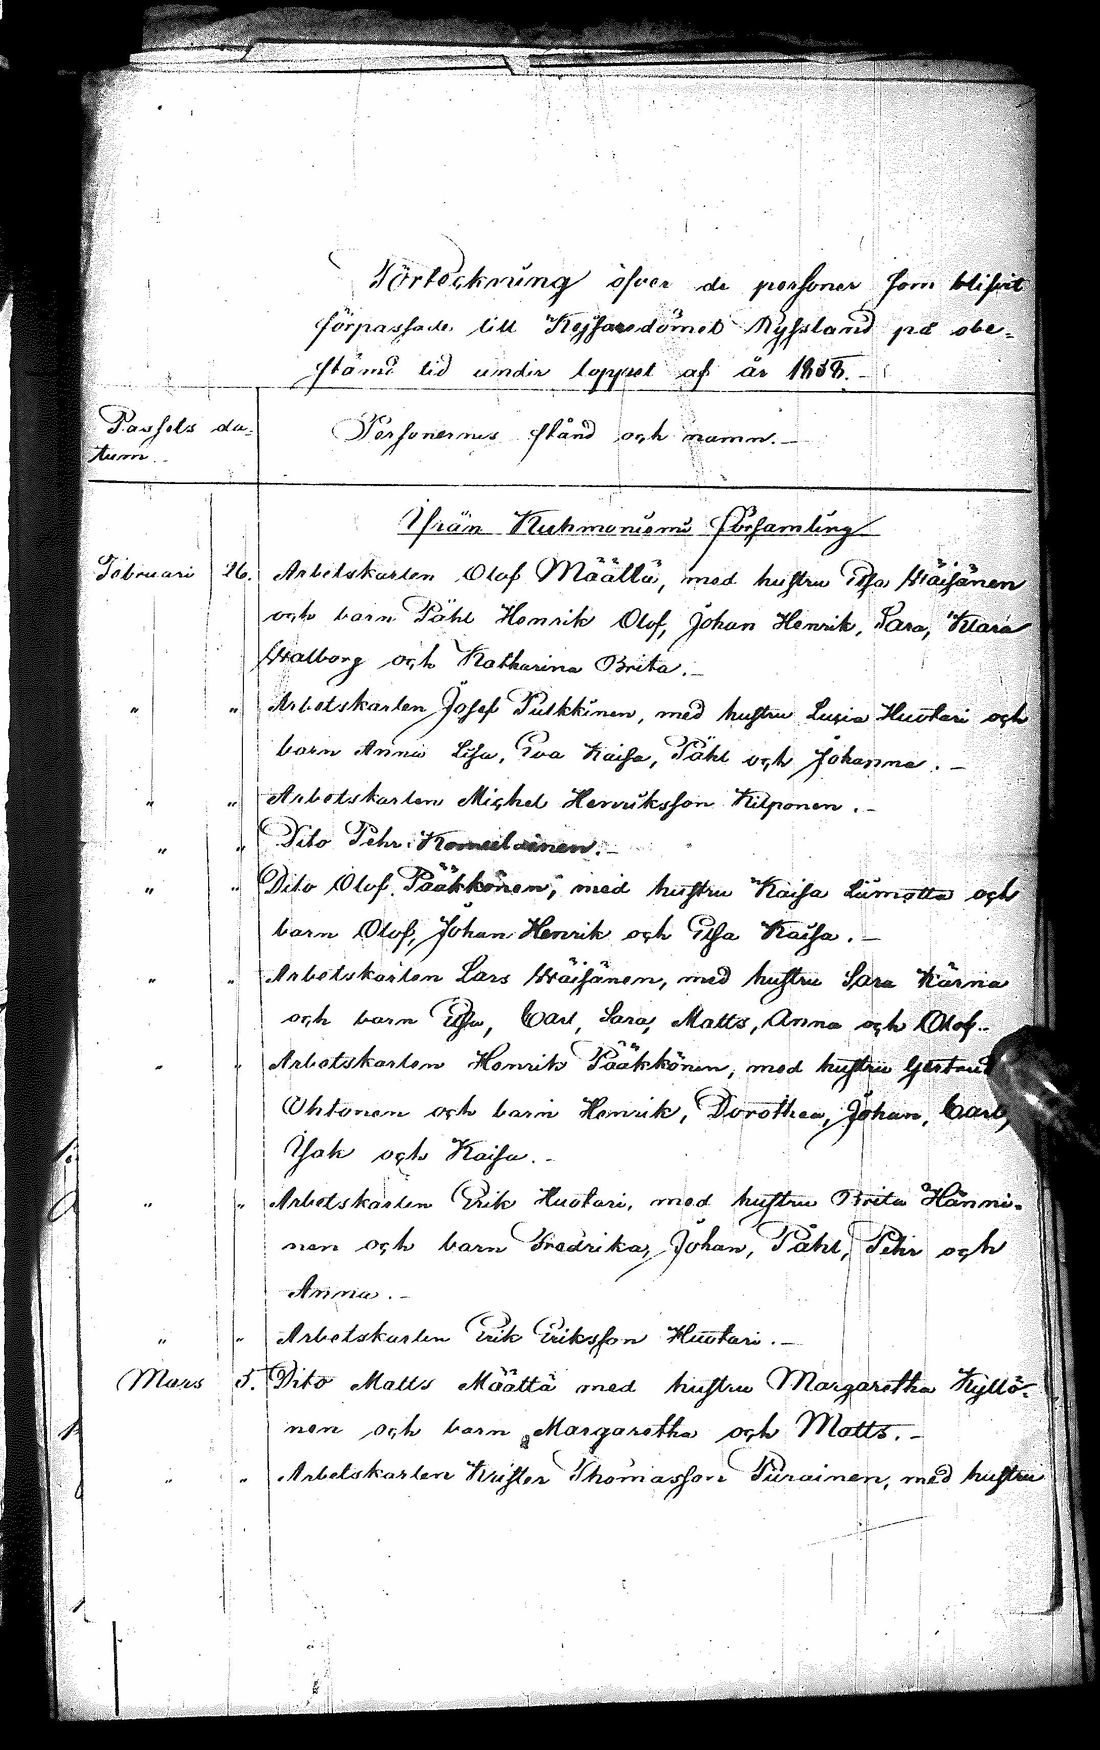 Förteckning öfver de personer som blifvit
förpassade till Kejsaredömet Ryssland på obe-
stämd tid under loppet af år 1858.-
Passets da-
tum.
Personernes stånd och namn.-
Ifrån Kuhmoniemi församling
Februari 26. Arbetskarlen Olof Määttä, med hustru Elsa Wäisänen
och barn Påhl Henrik Olof, Johan Henrik, Sara, Klara
Walborg och Katharina Brita.-
" " Arbetskarlen Josef Pulkkinen, med hustru Lucia Huotari och
barn Anna Lisa, Eva Kaisa, Påhl och Johanna.-
" " Arbetskarlen Michel Henriksson Kilponen.-
" " Dito Pehr
" " Dito Olof Pääkkönen, med hustru Kaisa Lümatta och
barn Olof, Johan Henrik och Elsa Kaisa.-
" " Arbetskarlen Lars Wäisänen, med hustru Sara Kärnä
och barn Elsa, Carl, Sara, Matts, Anna och Olof.-
" " Arbetskarlen Henrik Pääkkönen, med hustru Gertrud
Ohtonen och barn Henrik, Dorothea, Johan, Carl,
Isak och Kaisa.-
" " Arbetskarlen Erik Huotari, med hustru Brita Hänni-
nen och barn Fredrika, Johan, Påhl, Pehr och
Anna.-
" " Arbetskarlen Erik Eriksson Huotari.-
Mars 5. Dito Matts Määttä med hustru Margaretha Kyllö-
nen och barn Margaretha och Matts.-
" " Arbetskarlen Krister Thomasson Piirainen, med hustru